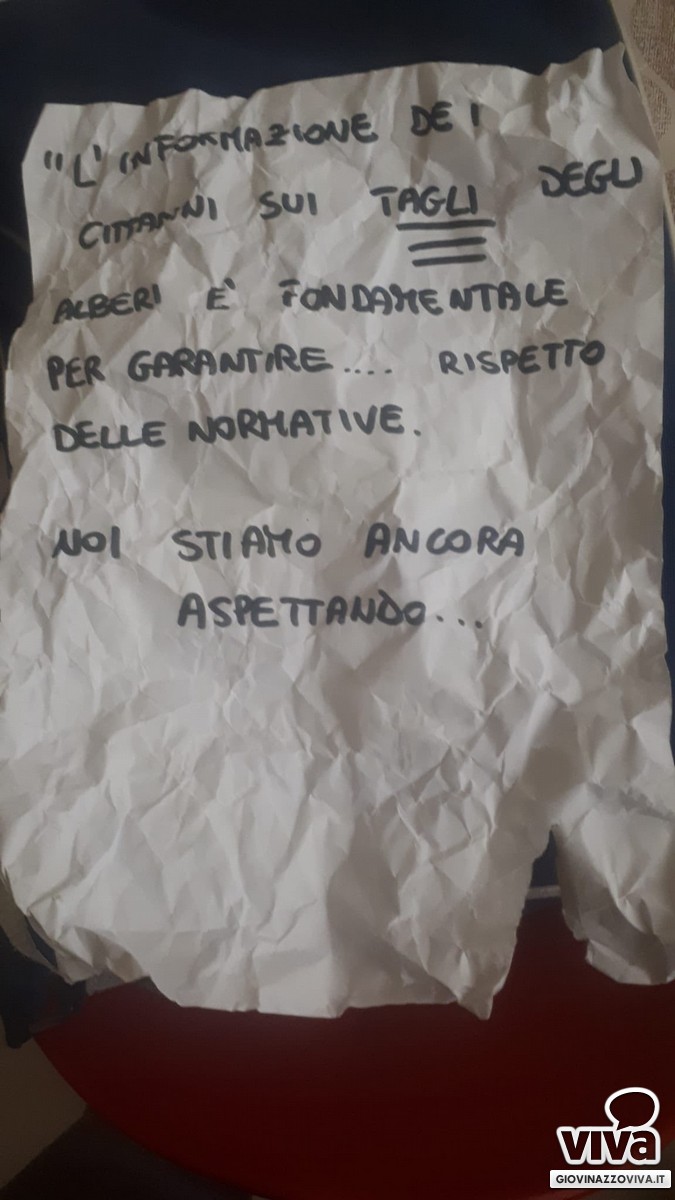 "L'INFORMAZIONE DEI
CITTANNI SUI TAGLI DEGLI
ALBERI E' FONDAMENTALE
PER GARANTIRE.... RISPETTO
DELLE NORMATIVE.
NOI STIAMO ANCORA
ASPETTANDO...
VIVA
GIOVINAZZOVIVA.IT